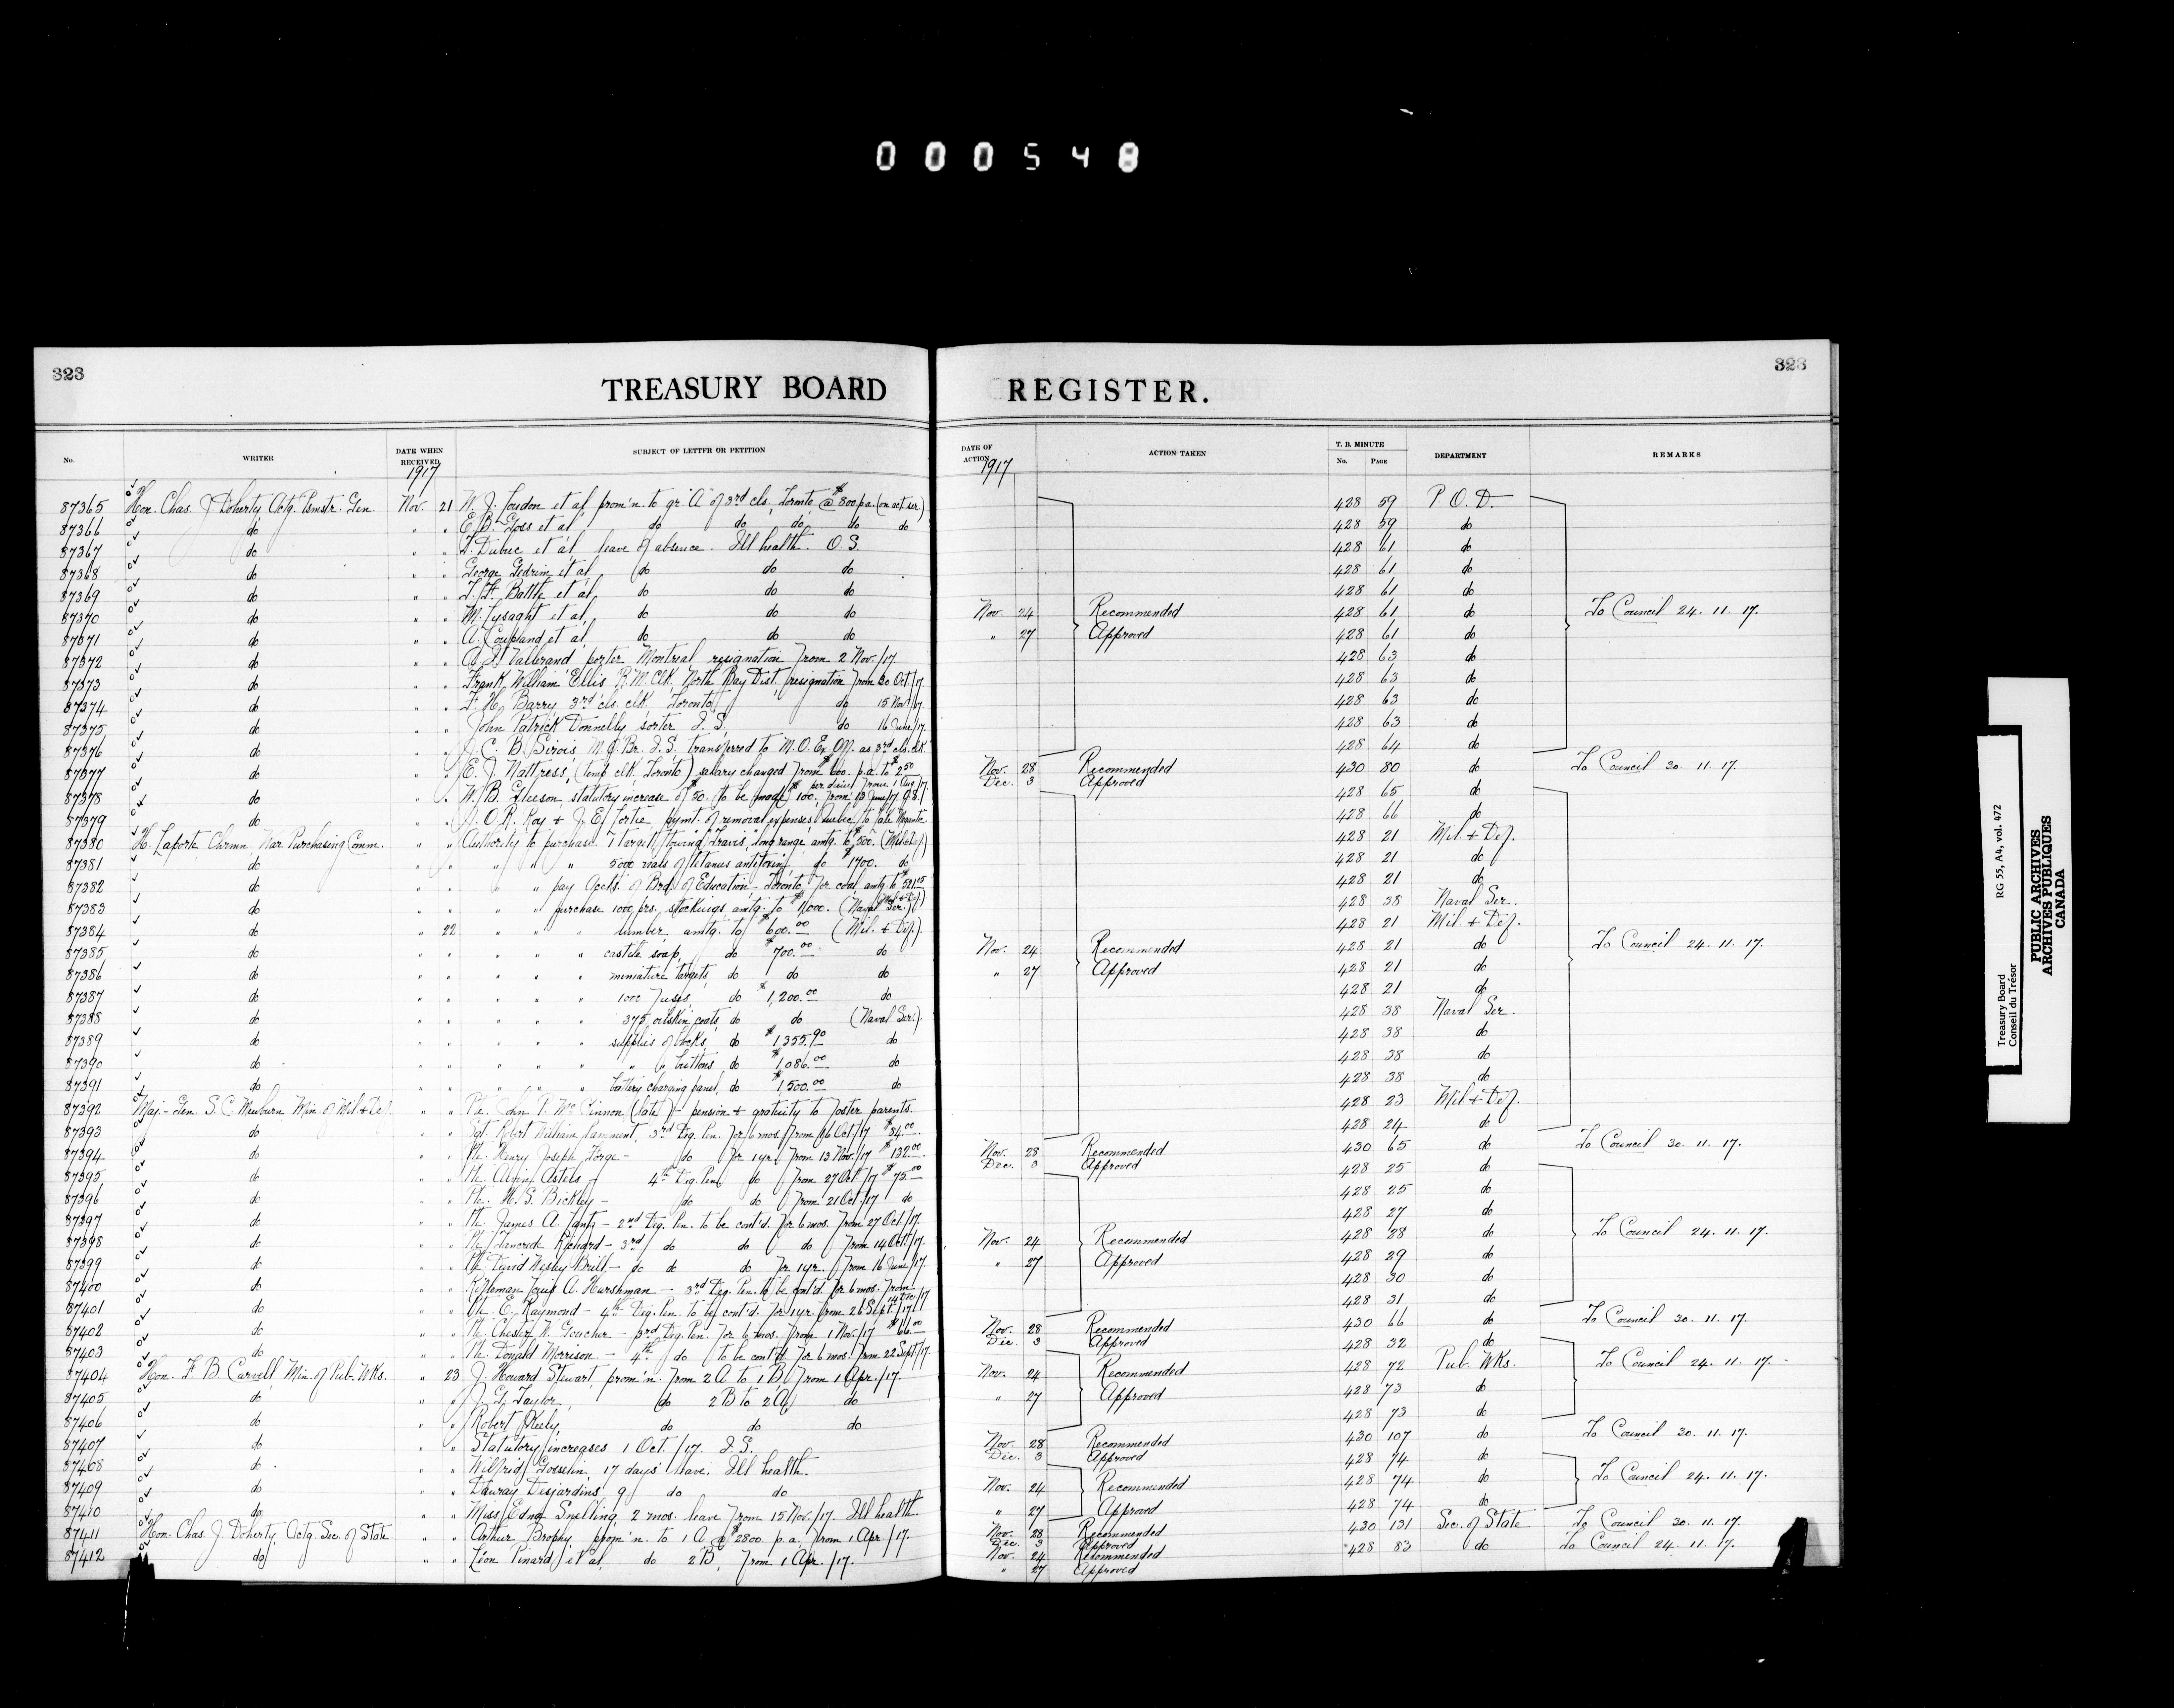 000548
323
TREASURY BOARD REGISTER.
323
No. WRITER DATE WHEN RECEIVED SUBJECT OF LETTER OR PETITION DATE OF ACTION ACTION TAKEN T. B. MINUTE No. PAGE DEPARTMENT REMARKS
1917 1917
87365 Hon. Chas. J. Doherty, Actg. Psmstr. Gen. Nov. 21 W. J. Loudon et al, prom'n. to gr. "A" of 3rd cls. Toronto, @ $800 p.a. (on act. ser.) 428 59 P. O. D.
87366 do " " E. B. Goss et al, do do do do do 428 59 do
87367 do " " Dubuc et al, leave of absence. Ill health. O. S. 428 61 do
87368 do " " George et al, do do do 428 61 do
87369 do " " Battle et al, do do do 428 61 do
87370 do " " M. Lysaght et al, do do do Nov. 24 Recommended 428 61 do To Council 24. 11. 17.
87371 do " " A. Coupland et al, do do do " 27 Approved 428 61 do
87372 do " " Vallerand, porter Montreal resignation from 2 Nov./17. 428 63 do
87373 do " " Frank William Ellis R. M. Clk. North Bay Dist. resignation from 20 Oct/17. 428 63 do
87374 do " " Barry, 3rd cls. clk. Toronto, do 15 Nov/17. 428 63 do
87375 do " " John Patrick Donnelly sorter I. S. do 16 June/17. 428 63 do
87376 do " " J. C. B. Sirois M. O. Br. I. S. transferred to M. O. Ex. Off. as 3rd cls. clk. 428 64 do
87377 do " " E. J. Nattress, (temp. clk. Toronto) salary changed from $600. p.a. to $2.50 per diem from 1 Aug/17. Nov. 28 Recommended 430 80 do To Council 30. 11. 17.
Dec. 3 Approved
87378 do " " W. B. Gleeson, statutory increase of $50. to be made $100. from 13 June/17. 428 65 do
87379 do " " J. O. R. Roy + J. E. Fortie pymt. of removal expenses Quebec to 428 66 do
87380 H. Laporte Chrmn. War Purchasing Comm. " " Authority to purchase 7 targets, towing "Travis", long range amtg. to $500. (Mil + Def.) 428 21 Mil. + Def.
87381 do " " " " 5000 vials of tetanus antitoxin, do $1700. do 428 21 do
87382 do " " " pay Accts. of Brd. of Education, Toronto for coal, amtg. to (Mil + Def.) 428 21 do
87383 do " " " purchase 1000 prs. stockings amtg. to $1,000. (Naval Ser.) 428 38 Naval Ser.
87384 do " 22 " " " lumber, amtg. to $600.00 (Mil. + Def.) 428 21 Mil. + Def.
87385 do " " " " " castile soap, do $700.00 do Nov. 24 Recommended 428 21 do To Council 24. 11. 17.
87386 do " " " " " miniature targets, do do do " 27 Approved 428 21 do
87387 do " " " " " 1000 fuses, do $1,200.00 do 428 21 do
87388 do " " " " " 375 oilskin coats, do do (Naval Ser.) 428 38 Naval Ser.
87389 do " " " " " supplies of do $1,355.90 do 428 38 do
87390 do " " " " " " " buttons, do $1,086.00 do 428 38 do
87391 do " " " " " battery charging panel, do $1,500.00 do 428 38 do
87392 Maj.-Gen. S. C. Mewburn Min. of Mil + Def. " " Pte. John P. McKinnon (late) - pension + gratuity to foster parents. 428 23 Mil + Def.
87393 do " " Sgt. Robert William Lamment, 3rd Deg. Pen. for 6 mos. from 16 Oct/17 $84.00 428 24 do
87394 do " " Pte. Henry Joseph - do for 1 yr. from 13 Nov./17 $132.00 Nov. 28 Recommended 430 65 do To Council 30. 11. 17.
Dec. 3 Approved
87395 do " " Pte. Astels - 4th Deg. Pen. do from 27 Oct/17 $75.00 428 25 do
87396 do " " Pte. H. S. Bickley - do do from 21 Oct/17 do 428 25 do
87397 do " " Pte. James A. - 2nd Deg. Pen. to be cont'd. for 6 mos. from 27 Oct/17. 428 27 do
87398 do " " Pte. Tancrede Richard - 3rd do do do from 14 Oct/17. Nov. 24 Recommended 428 28 do To Council 24. 11. 17.
87399 do " " Pte. David Wesley Britt - do do do for 1 yr. from 16 June/17. " 27 Approved 428 29 do
87400 do " " Rifleman Louis A. Hurshman - 3rd Deg. Pen. to be cont'd. for 6 mos. from 14 Dec/17 428 30 do
87401 do " " Pte. E. Raymond - 4th Deg. Pen. to be cont'd. for 1 yr. from 26 Sept./17 428 31 do
87402 do " " Pte. Chester W. Goucher - 3rd Deg. Pen. for 6 mos. from 1 Nov./17 $66.00 Nov. 28 Recommended 430 66 do To Council 30. 11. 17.
Dec. 3 Approved
87403 do " " Pte. Donald Morrison - 4th do to be cont'd. for 6 mos. from 22 Sept/17. 428 32 do
87404 Hon. F. B. Carvell, Min. of Pub. Wks. " 23 J. Howard Stewart, prom'n. from 2 A to 1 B, from 1 Apr./17. Nov. 24 Recommended 428 72 Pub. Wks. To Council 24. 11. 17.
87405 do " " J. G. Taylor, do 2 B to 2 A, do " 27 Approved 428 73 do
87406 do " " Robert Keely, do do do 428 73 do
87407 do " " Statutory increases 1 Oct./17. I. S. Nov. 28 Recommended 430 107 do To Council 30. 11. 17.
Dec. 3 Approved
87408 do " " Wilfrid Gosselin, 17 days' leave. Ill health. 428 74 do
87409 do " " Dauray Desjardins 9 do do Nov. 24 Recommended 428 74 do To Council 24. 11. 17.
87410 do " " Miss Edna Snelling, 2 mos. leave from 15 Nov./17. Ill health. " 27 Approved 428 74 do
87411 Hon. Chas. J. Doherty, Actg. Sec. of State " " Arthur Brophy, prom'n. to 1 A @ $2800 p.a. from 1 Apr./17. Nov. 28 Recommended 430 131 Sec. of State To Council 30. 11. 17.
Dec. 3 Approved
87412 do " " Léon Pinard et al, do 2 B, from 1 Apr./17. Nov. 24 Recommended 428 83 do To Council 24. 11. 17.
" 27 Approved
Treasury Board RG 55, A4, vol. 472
Conseil du Trésor
PUBLIC ARCHIVES
ARCHIVES PUBLIQUES
CANADA